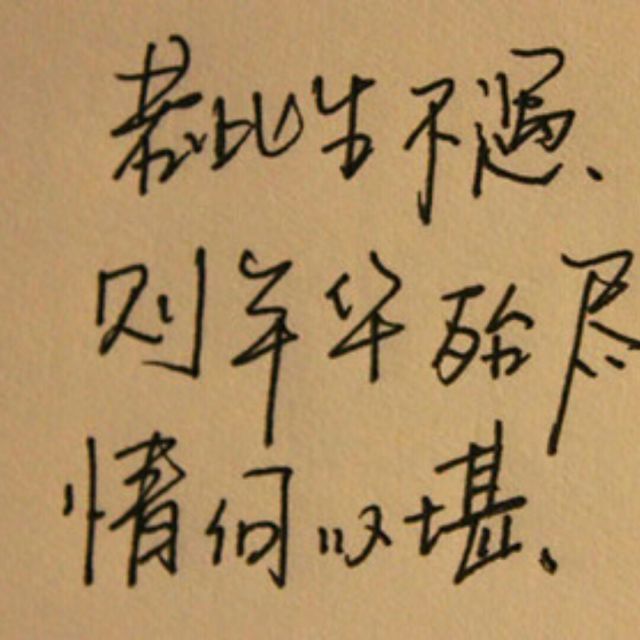 若此生不遇、
则年华殆尽
情何以堪、